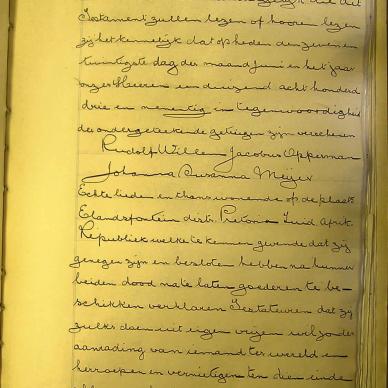 dit
Testament zullen lezen of hooren lezen
zij het kennelijk dat op heden den zeven en
twintigste dag der maand Juni in het jaar
onzes Heeren een duizend acht honderd
drie en negentig in tegenwoordigheid
der ondergeteekende getuigen zijn verschenen
Rudolf Willem Jacobus Opperman
Johanna Susanna Meijer
Echte lieden en thans wonende op de plaats
Elandsfontein distr. Pretoria Zuid Afrik.
Republiek welke te kennen gevende dat zij
genegen zijn en besloten hebben na hunner
beiden dood na te laten goederen te be-
schikken verklaren Testateuren dat zij
zulks doen uit eigen vrijen wil zonder
aanrading van iemand ter wereld en
herroepen en vernietigen ten dien einde